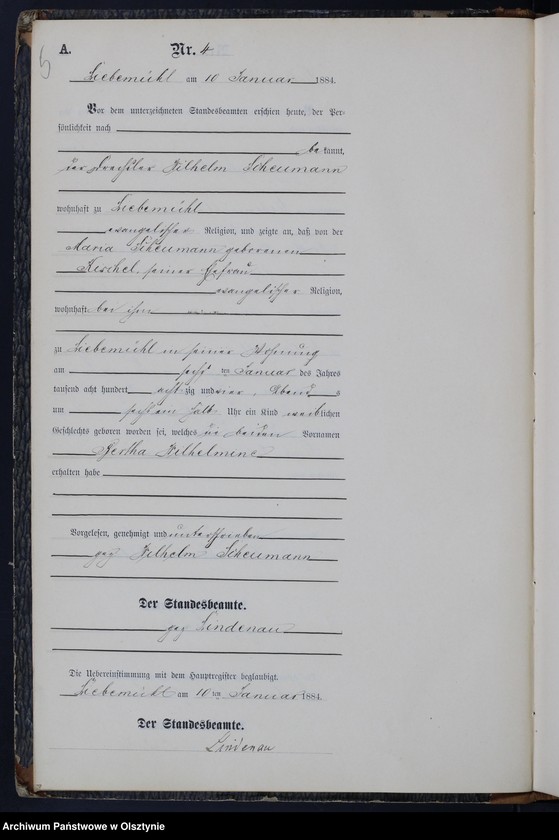 A.
Nr. 4
Liebemühl am 10 Januar 1884.
Vor dem unterzeichneten Standesbeamten erschien heute, der Per-
sönlichkeit nach
be kannt,
der Drechsler Wilhelm Scheumann
wohnhaft zu Liebemühl
evangelischer Religion, und zeigte an, daß von der
Maria Scheumann geborenen
seiner Ehefrau
evangelischer Religion,
wohnhaft bei ihm
zu Liebemühl in seiner Wohnung
am sechs ten Januar des Jahres
tausend acht hundert acht zig und vier, Abend s
um Uhr ein Kind weiblichen
Geschlechts geboren worden sei, welches die beiden Vornamen
Bertha Wilhelmine
erhalten habe
Vorgelesen, genehmigt und unterschrieben
gez Wilhelm Scheumann
Der Standesbeamte.
gez Lindenau
Die Uebereinstimmung mit dem Hauptregister beglaubigt.
Liebemühl am 10 ten Januar 1884.
Der Standesbeamte.
Lindenau
Archiwum Państwowe w Olsztynie